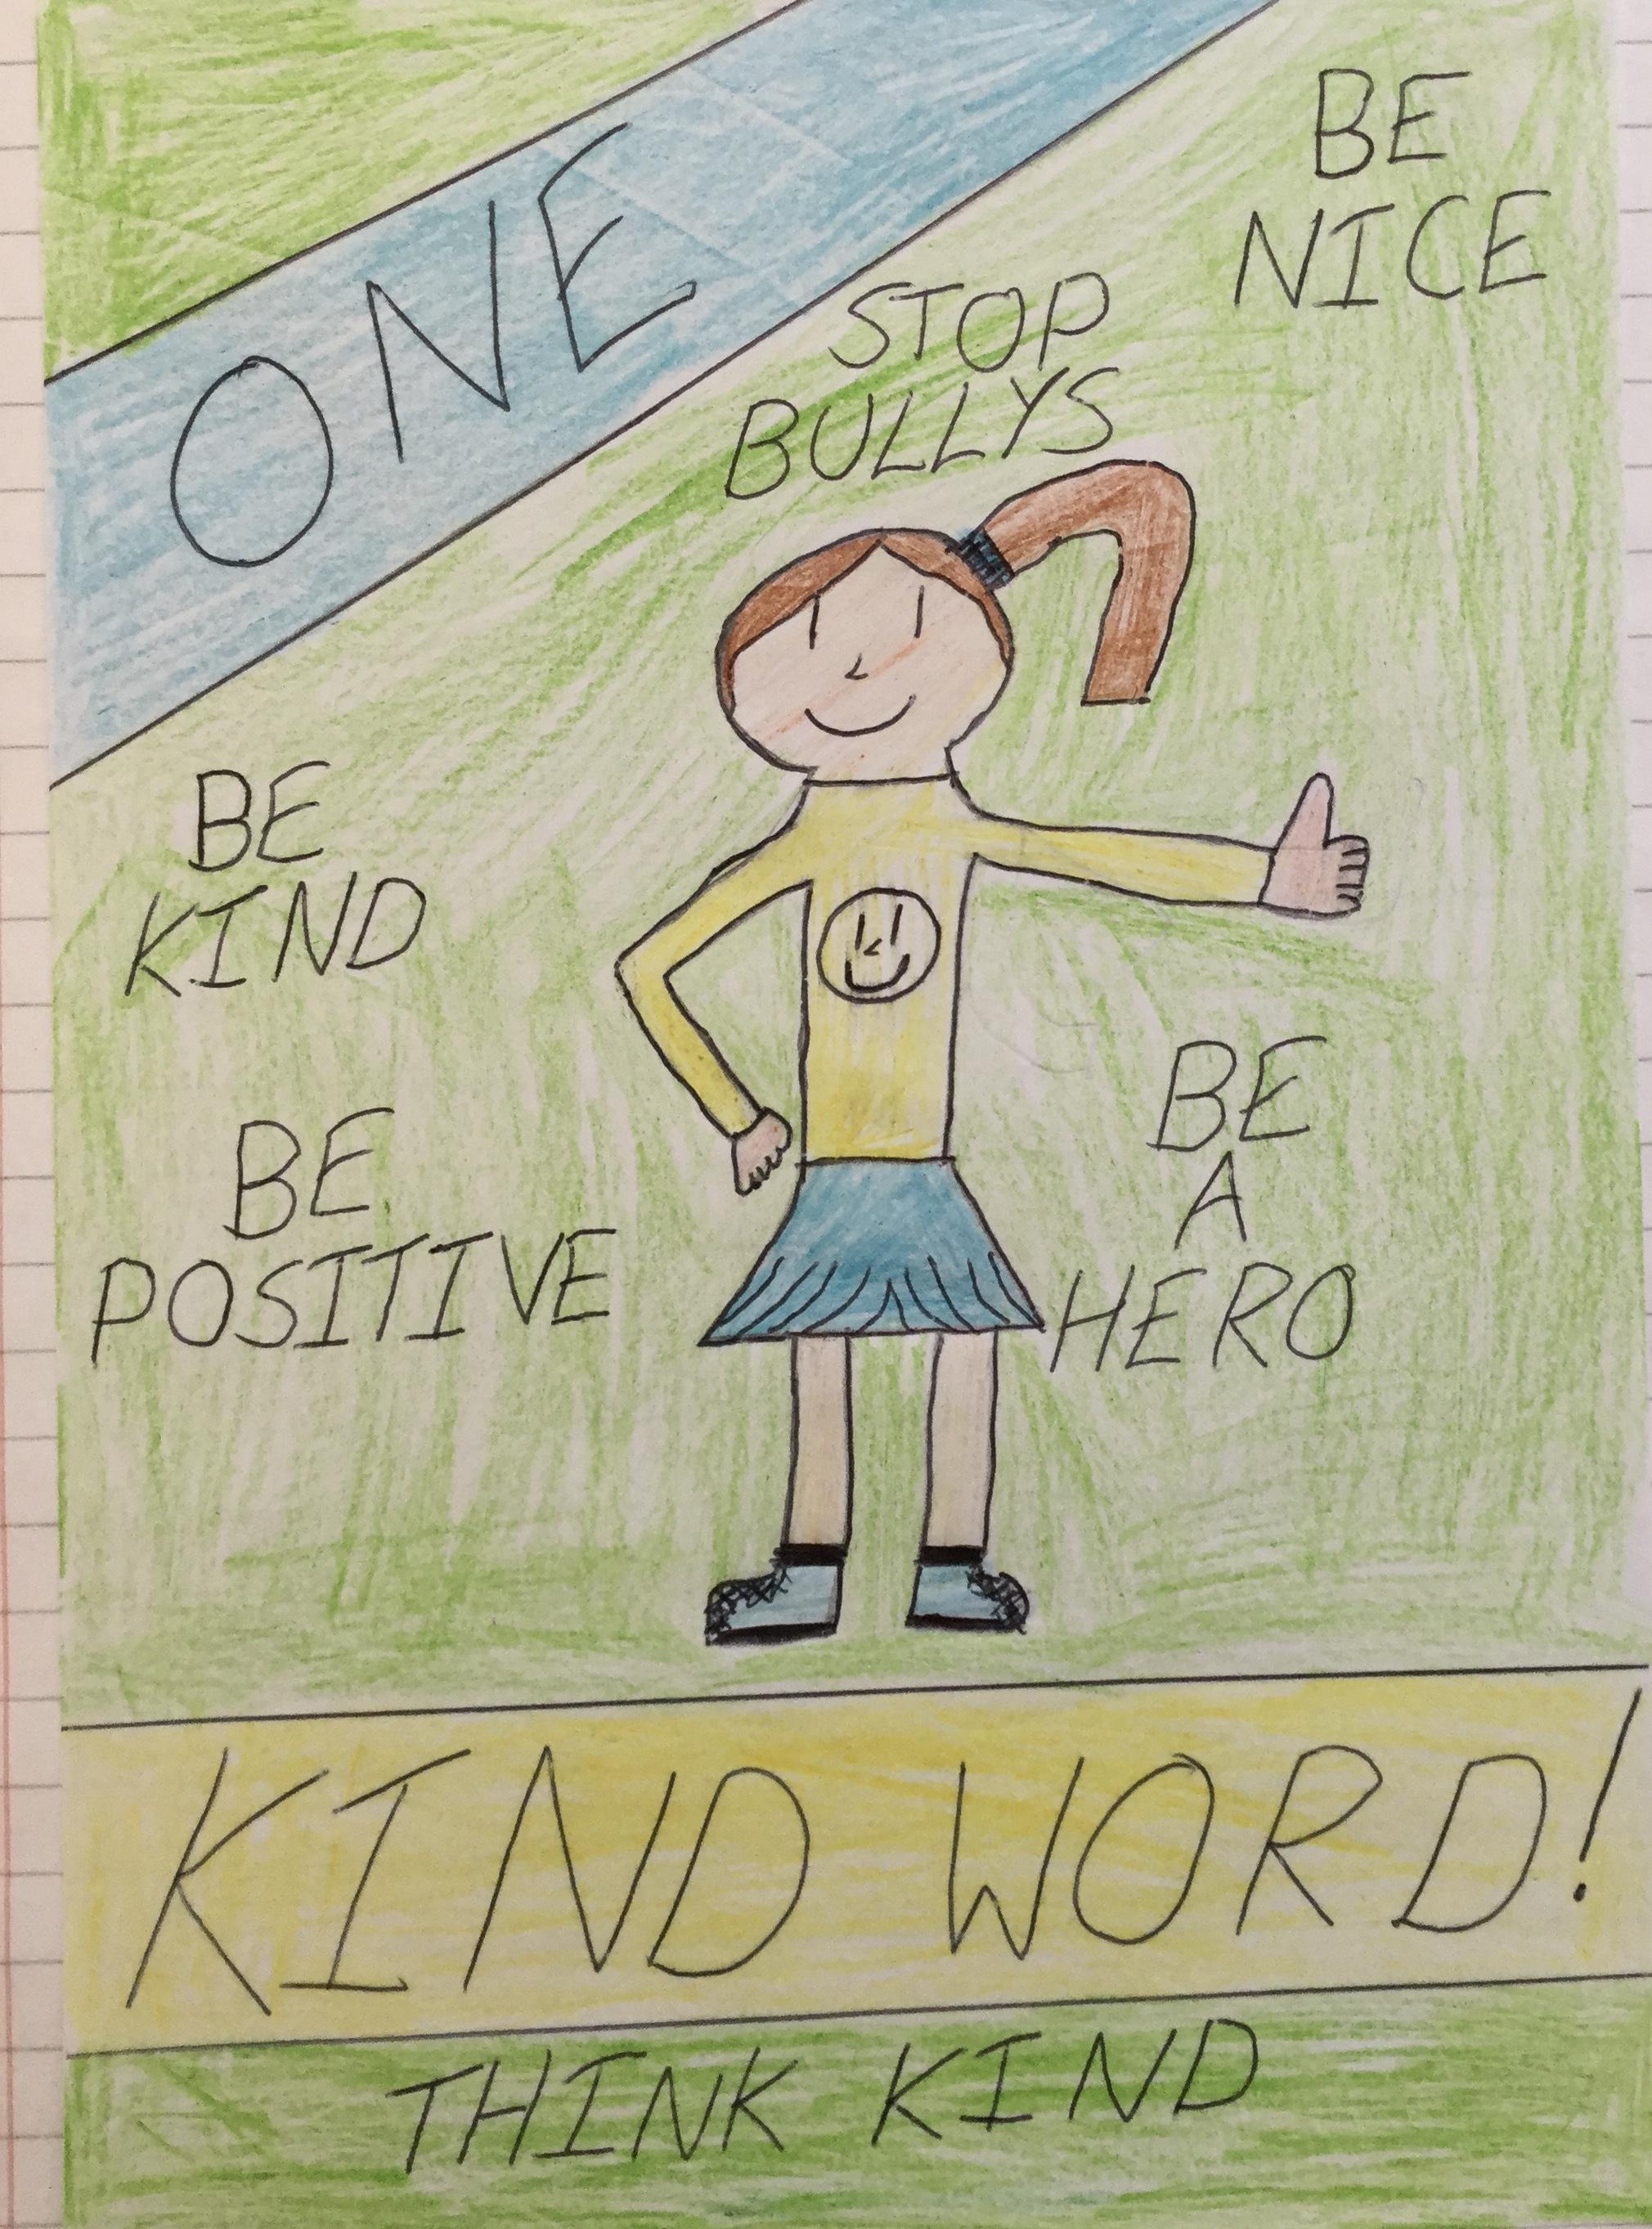 ONE
BE
NICE
STOP
BULLYS
BE
KIND
BE
POSITIVE
BE
A
HERO
KIND WORD!
THINK KIND